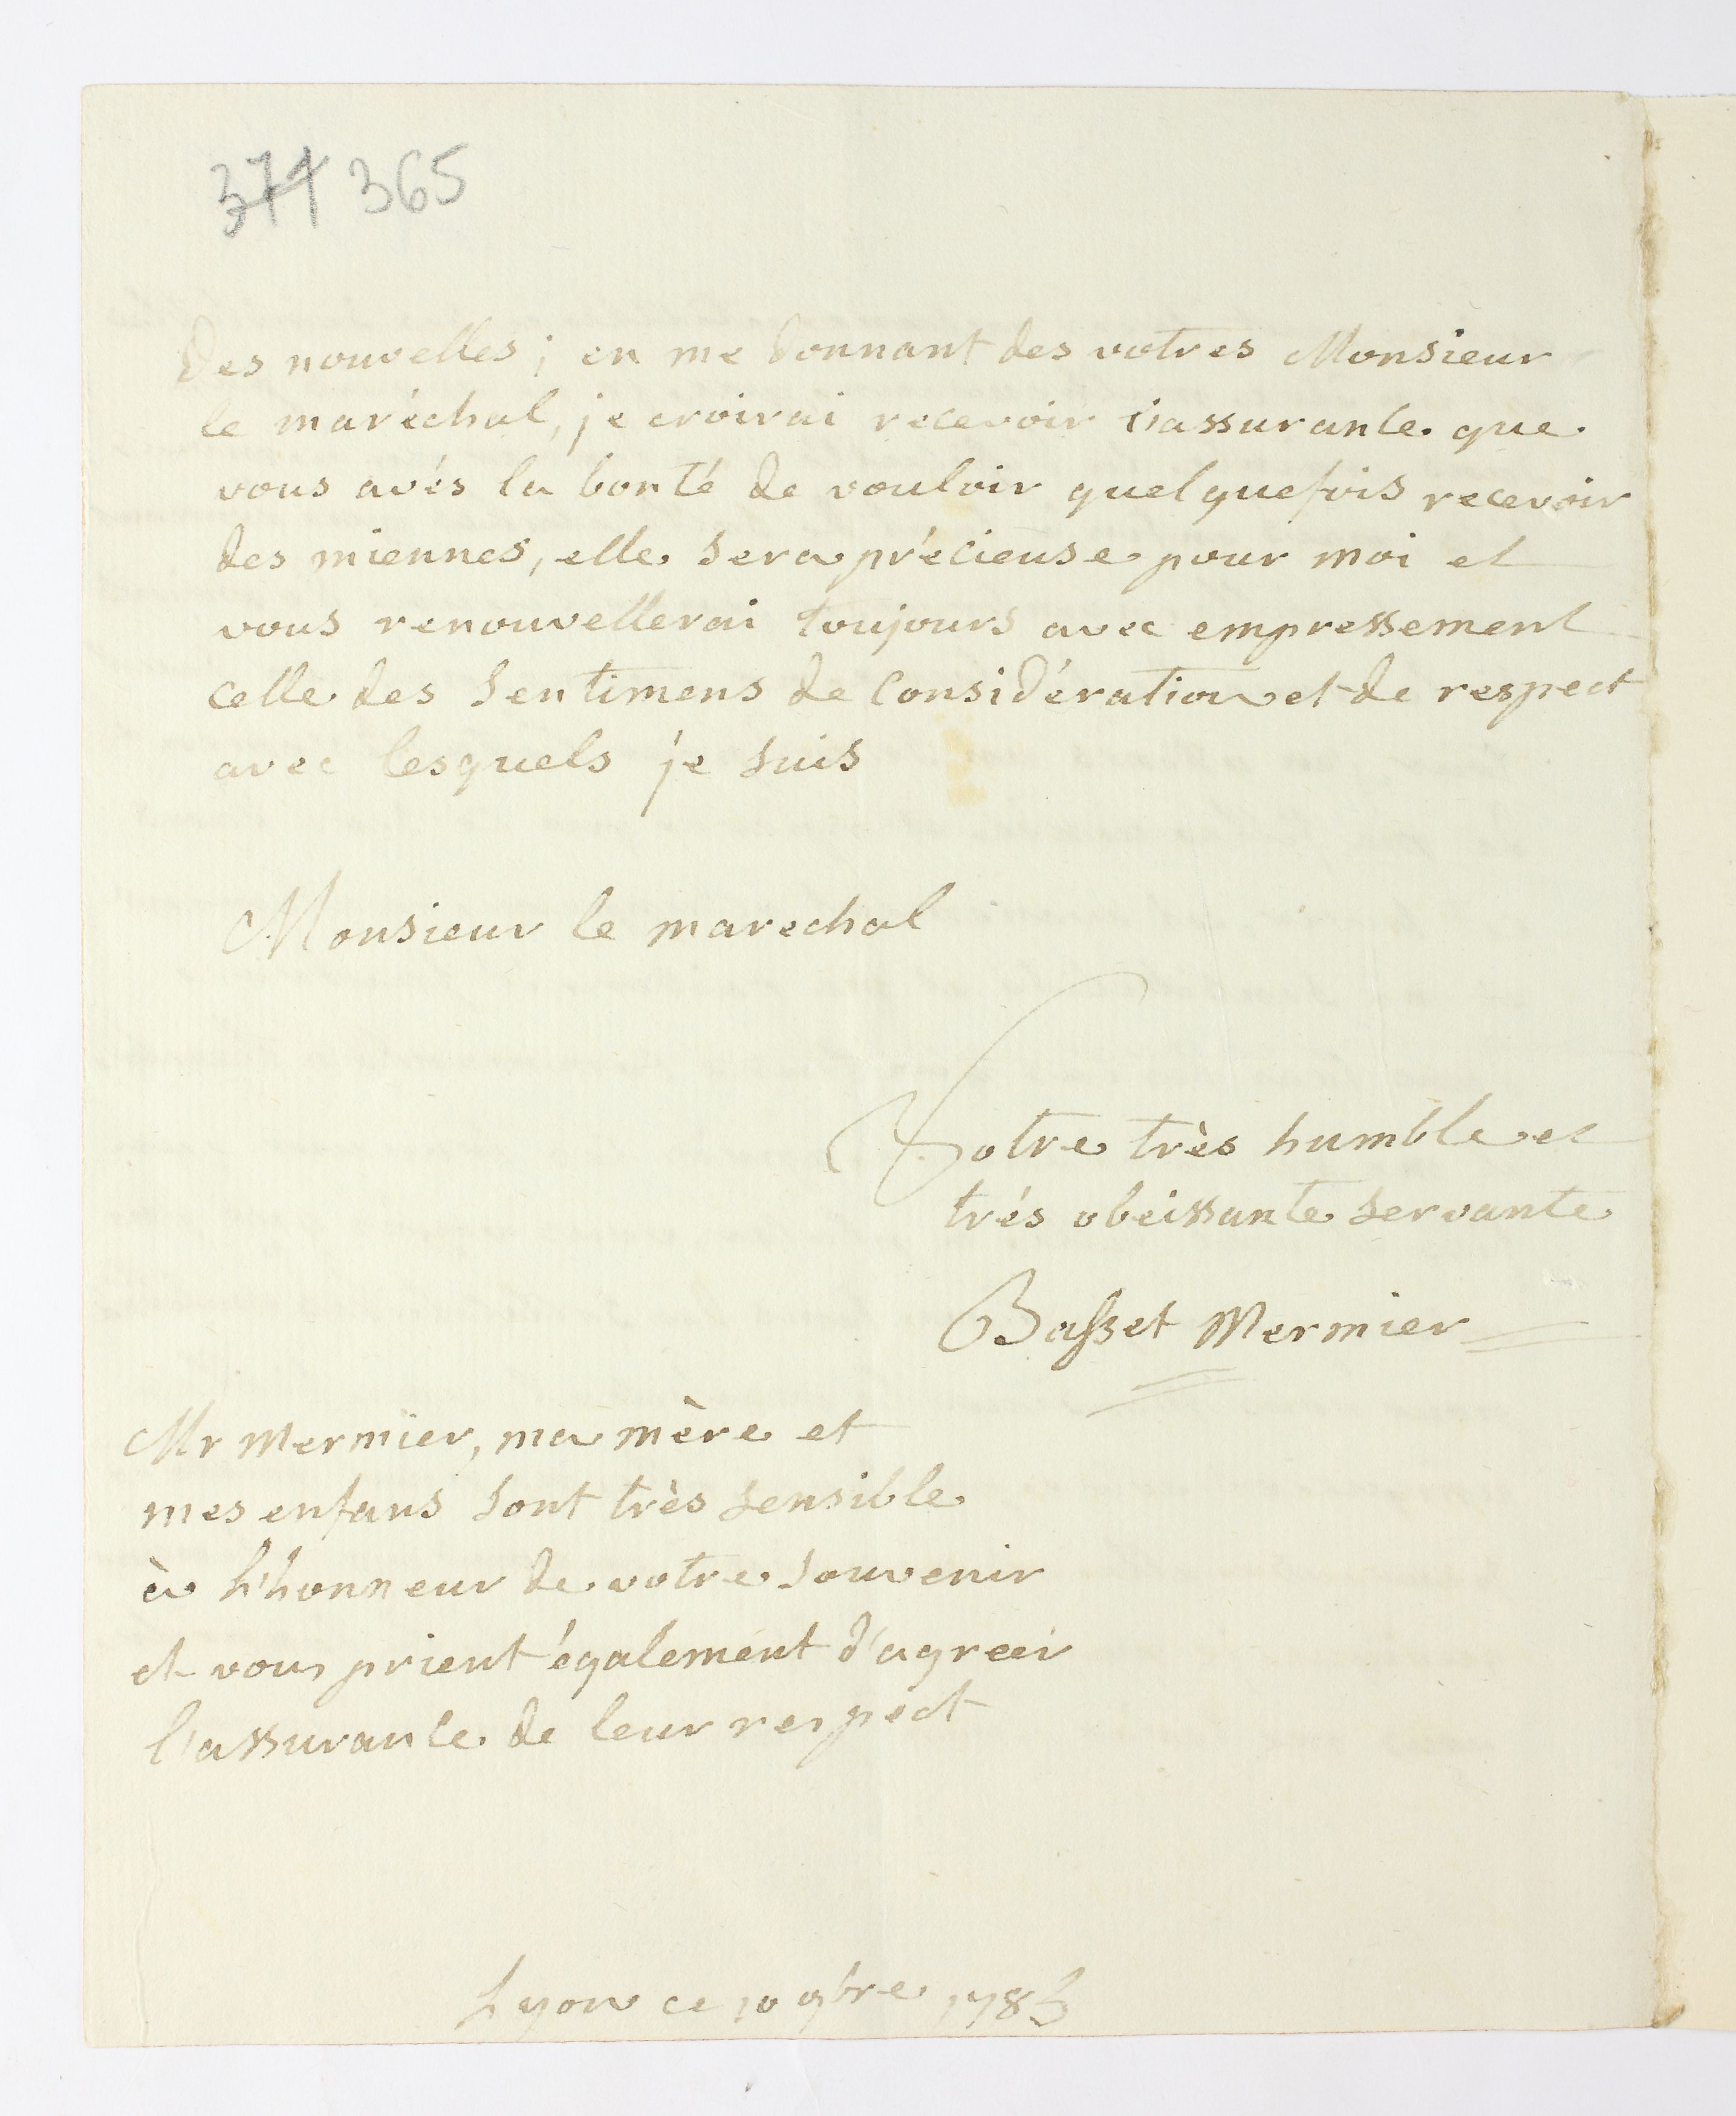 374 365
des nouvelles ; en me donnant des votres Monsieur
le maréchal, je croirai recevoir l'assurance que
vous avés la bonté de vouloir quelquefois recevoir
des miennes, elle sera précieuse pour moi et
vous renouvellerai toujours avec empressement
celle des sentimens de considération et de respect
avec lesquels je suis
Monsieur le marechal
Votre très humble et
trés obeissante servante
Basset Mermier
Mr Mermier, ma mère et
mes enfans sont très sensible
à l'honneur de votre souvenir
et vous prient également d'agreer
l'assurance de leur respect
Lyon ce 10 9bre 1785